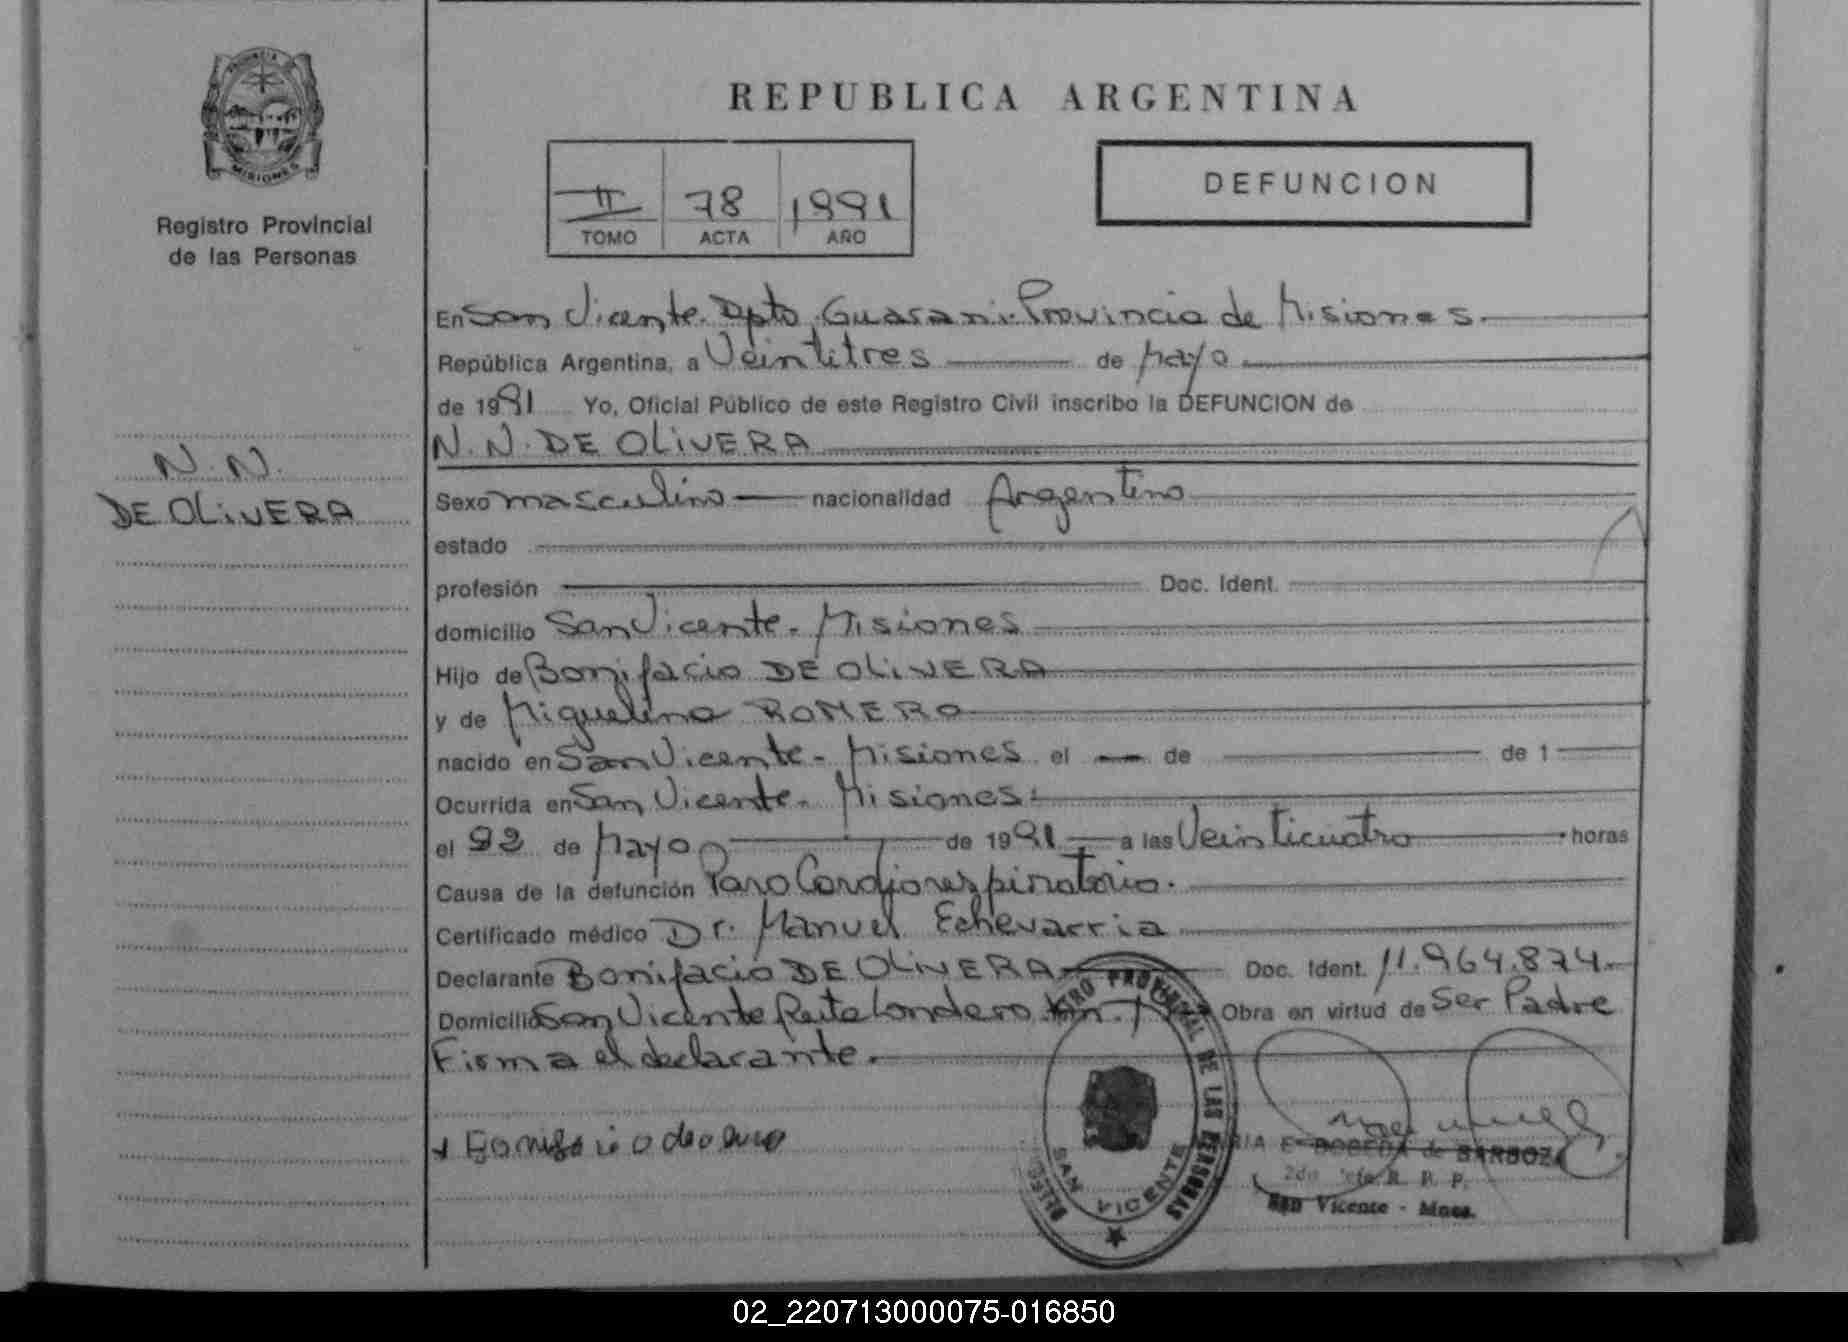 PROVINCIA
MISIONES
Registro Provincial
de las Personas
N. N.
DE OLIVERA
REPUBLICA ARGENTINA
II 78 1991
TOMO ACTA AÑO
DEFUNCION
En San Vicente. Dpto. Guarani. Provincia de Misiones.
República Argentina, a Veintitres de Mayo
de 1991 Yo, Oficial Público de este Registro Civil inscribo la DEFUNCION de
N. N. DE OLIVERA
Sexo masculino nacionalidad Argentino
estado
profesión Doc. Ident.
domicilio San Vicente. Misiones
Hijo de Bonifacio DE OLIVERA
y de Miguelina ROMERO
nacido en San Vicente. Misiones el de de 1
Ocurrida en San Vicente. Misiones.
el 22 de Mayo de 1991 a las Veinticuatro horas
Causa de la defunción Paro Cardiorespiratorio.
Certificado médico Dr. Manuel Echevarria
Declarante Bonifacio DE OLIVERA Doc. Ident. 11.964.874.
Domicilio San Vicente Londero Km. Obra en virtud de Ser Padre
Firma el declarante.
REGISTRO PROVINCIAL DE LAS PERSONAS
SAN VICENTE
E. de BARBOZA
R. P. P.
San Vicente - Mnes.
02_220713000075-016850